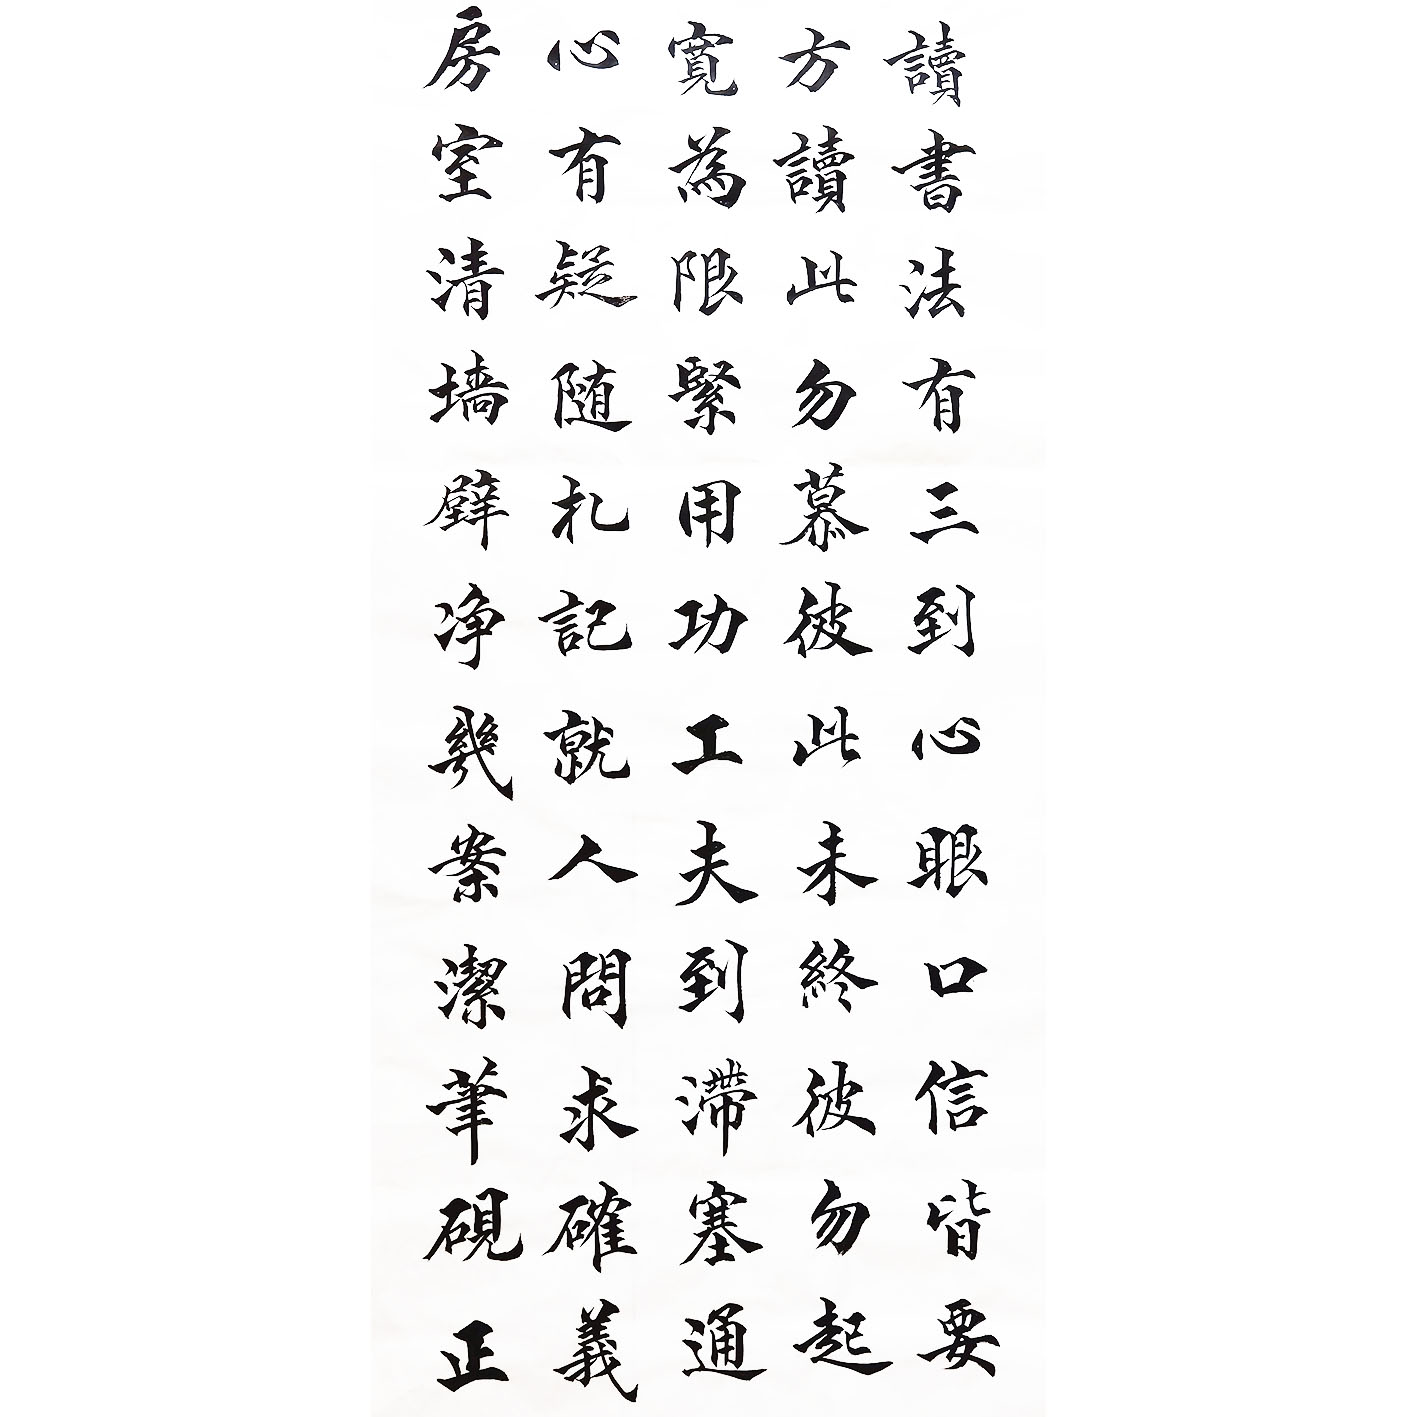 讀書法有三到心眼口信皆要
方讀此勿慕彼此未終彼勿起
寬為限緊用功工夫到滯塞通
心有疑随札記就人問求確義
房室清墙壁净幾案潔筆硯正